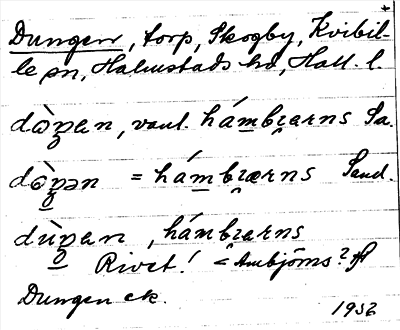 Dungen, torp, Skogby, Kvibil-
le sn, Halmstads hd, Hall. l.
dò̀ŋan, vanl. hámbɩarns Sa.
dò̀ŋən = hámbɩærns Sand.
dùŋan, hámbɩarns
Rivet! < Ambjörns?
Dungen ek.
1932